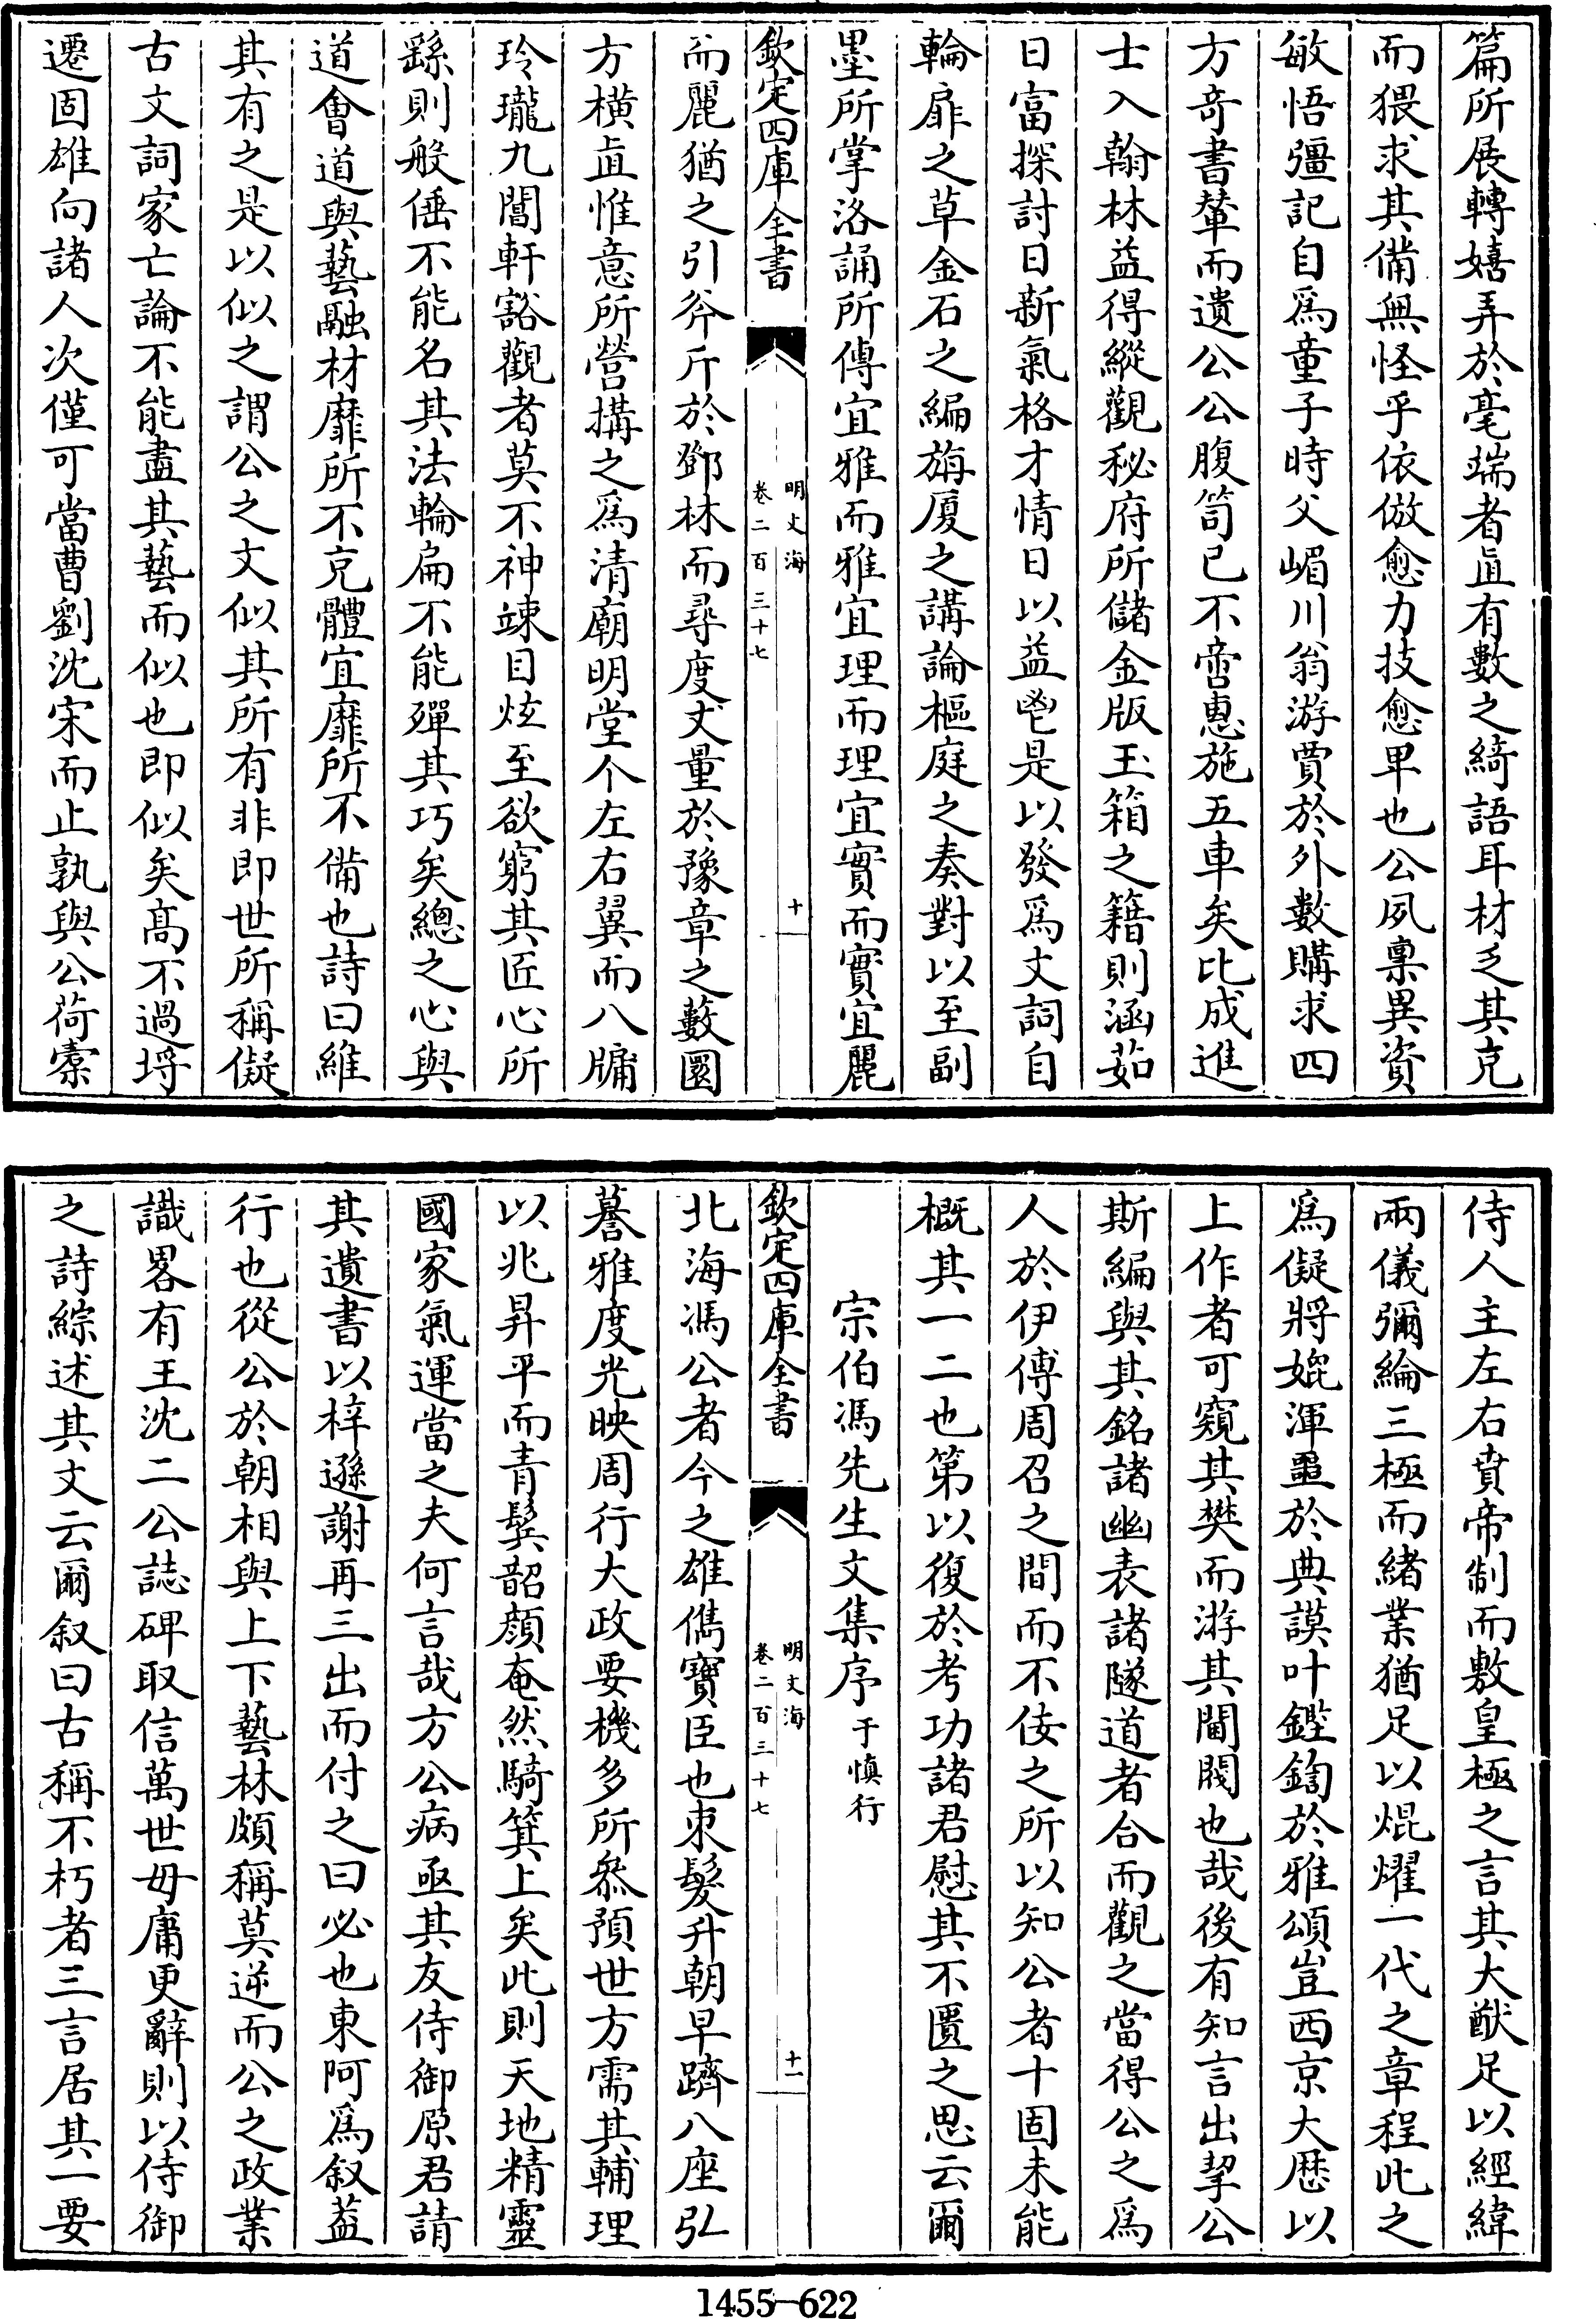 篇所展轉嬉弄於毫端者直有數之綺語耳材乏其克
而猥求其備無怪乎依倣愈力技愈卑也公夙稟異資
敏悟彊記自爲童子時父嵋川翁游賈於外數購求四
方奇書輦而遺公公腹笥已不啻惠施五車矣比成進
士入翰林益得縱觀秘府所儲金版玉箱之籍則涵茹
日富探討日新氣格才情日以益鬯是以發爲文詞自
輪扉之草金石之編旃厦之講論樞庭之奏對以至副
墨所掌洛誦所傳宜雅而雅宜理而理宜實而實宜麗
欽定四庫全書
明文海
卷二百三十七
十
而麗猶之引斧斤於鄧林而尋度丈量於豫章之藪圜
方橫直惟意所營搆之爲清廟明堂个左右翼而八牖
玲瓏九閶軒豁觀者莫不神竦目炫至欲窮其匠心所
繇則般倕不能名其法輪扁不能殫其巧矣總之心與
道會道與藝融材靡所不克體宜靡所不備也詩曰維
其有之是以似之謂公之文似其所有非即世所稱儗
古文詞家亡論不能盡其藝而似也即似矣高不過埒
遷固雄向諸人次僅可當曹劉沈宋而止孰與公荷橐
侍人主左右賁帝制而敷皇極之言其大猷足以經緯
兩儀彌綸三極而緒業猶足以焜燿一代之章程此之
爲儗將媲渾噩於典謨叶鏗鍧於雅頌豈西京大厯以
上作者可窺其樊而游其閫閾也哉後有知言出挈公
斯編與其銘諸幽表諸隧道者合而觀之當得公之爲
人於伊傅周召之間而不佞之所以知公者十固未能
概其一二也第以復於考功諸君慰其不匱之思云爾
宗伯馮先生文集序于慎行
欽定四庫全書
明文海
卷二百三十七
十一
北海馮公者今之雄儁寶臣也束髮升朝早躋八座弘
蕃雅度光映周行大政要機多所叅預世方需其輔理
以兆昇平而青鬂韶顏奄然騎箕上矣此則天地精靈
國家氣運當之夫何言哉方公病亟其友侍御原君請
其遺書以梓遜謝再三出而付之曰必也東阿爲叙蓋
行也從公於朝相與上下藝林頗稱莫逆而公之政業
識畧有王沈二公誌碑取信萬世毋庸更辭則以侍御
之詩綜述其文云爾叙曰古稱不朽者三言居其一要
1455-622